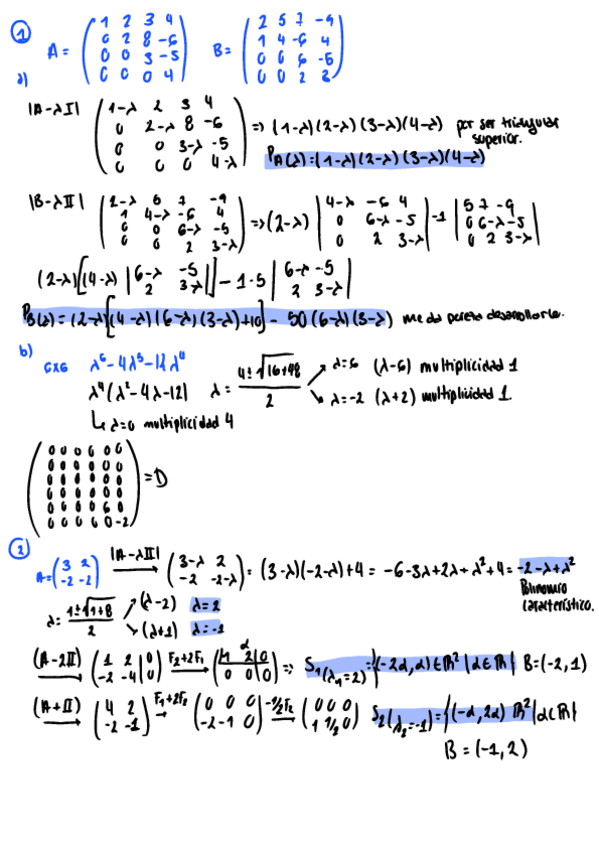 ①
A = ( 1 2 3 4 ; 0 2 8 -6 ; 0 0 3 -5 ; 0 0 0 4 ) B = ( 2 5 7 -9 ; 1 4 -6 4 ; 0 0 6 -5 ; 0 0 2 3 )
a)
|A-λI| ( 1-λ 2 3 4 ; 0 2-λ 8 -6 ; 0 0 3-λ -5 ; 0 0 0 4-λ ) => (1-λ)(2-λ)(3-λ)(4-λ) por ser triangular superior.
P_A(λ)=(1-λ)(2-λ)(3-λ)(4-λ)
|B-λII| ( 2-λ 5 7 -9 ; 1 4-λ -6 4 ; 0 0 6-λ -5 ; 0 0 2 3-λ ) => (2-λ) | 4-λ -6 4 ; 0 6-λ -5 ; 0 2 3-λ | -1 | 5 7 -9 ; 0 6-λ -5 ; 0 2 3-λ |
(2-λ)[(4-λ) | 6-λ -5 ; 2 3-λ |] - 1·5 | 6-λ -5 ; 2 3-λ |
P_B(λ) = (2-λ)[(4-λ)(6-λ)(3-λ)+10] - 50(6-λ)(3-λ) me da pereza desarrollarla.
b)
6x6 λ⁶-4λ⁵-12λ⁴
λ⁴(λ²-4λ-12) λ = (4±√16+48)/2 → λ=6 (λ-6) multiplicidad 1
→ λ=-2 (λ+2) multiplicidad 1.
↳ λ=0 multiplicidad 4
( 0 0 0 0 0 0 ; 0 0 0 0 0 0 ; 0 0 0 0 0 0 ; 0 0 0 0 0 0 ; 0 0 0 0 6 0 ; 0 0 0 0 0 -2 ) = D
②
A = ( 3 2 ; -2 -2 ) |A-λII| → ( 3-λ 2 ; -2 -2-λ ) = (3-λ)(-2-λ)+4 = -6-3λ+2λ+λ²+4 = -2-λ+λ²
Polinomio característico.
λ = (1±√1+8)/2 → (λ-2) λ=2
→ (λ+1) λ=-1
(A-2II) → ( 1 2 | 0 ; -2 -4 | 0 ) F₂+2F₁ → ( 1 2 | 0 ; 0 0 | 0 ) α => S₁(λ₁=2) = {(-2α,α)∈ℝ² | α∈ℝ} B=(-2,1)
(A+II) → ( 4 2 ; -2 -1 ) F₁+2F₂ → ( 0 0 0 ; -2 -1 0 ) -1/2F₂ → ( 0 0 0 ; 1 1/2 0 ) S₂(λ₂=-1) = {(-α,2α) ℝ² | α∈ℝ}
B = (-1,2)